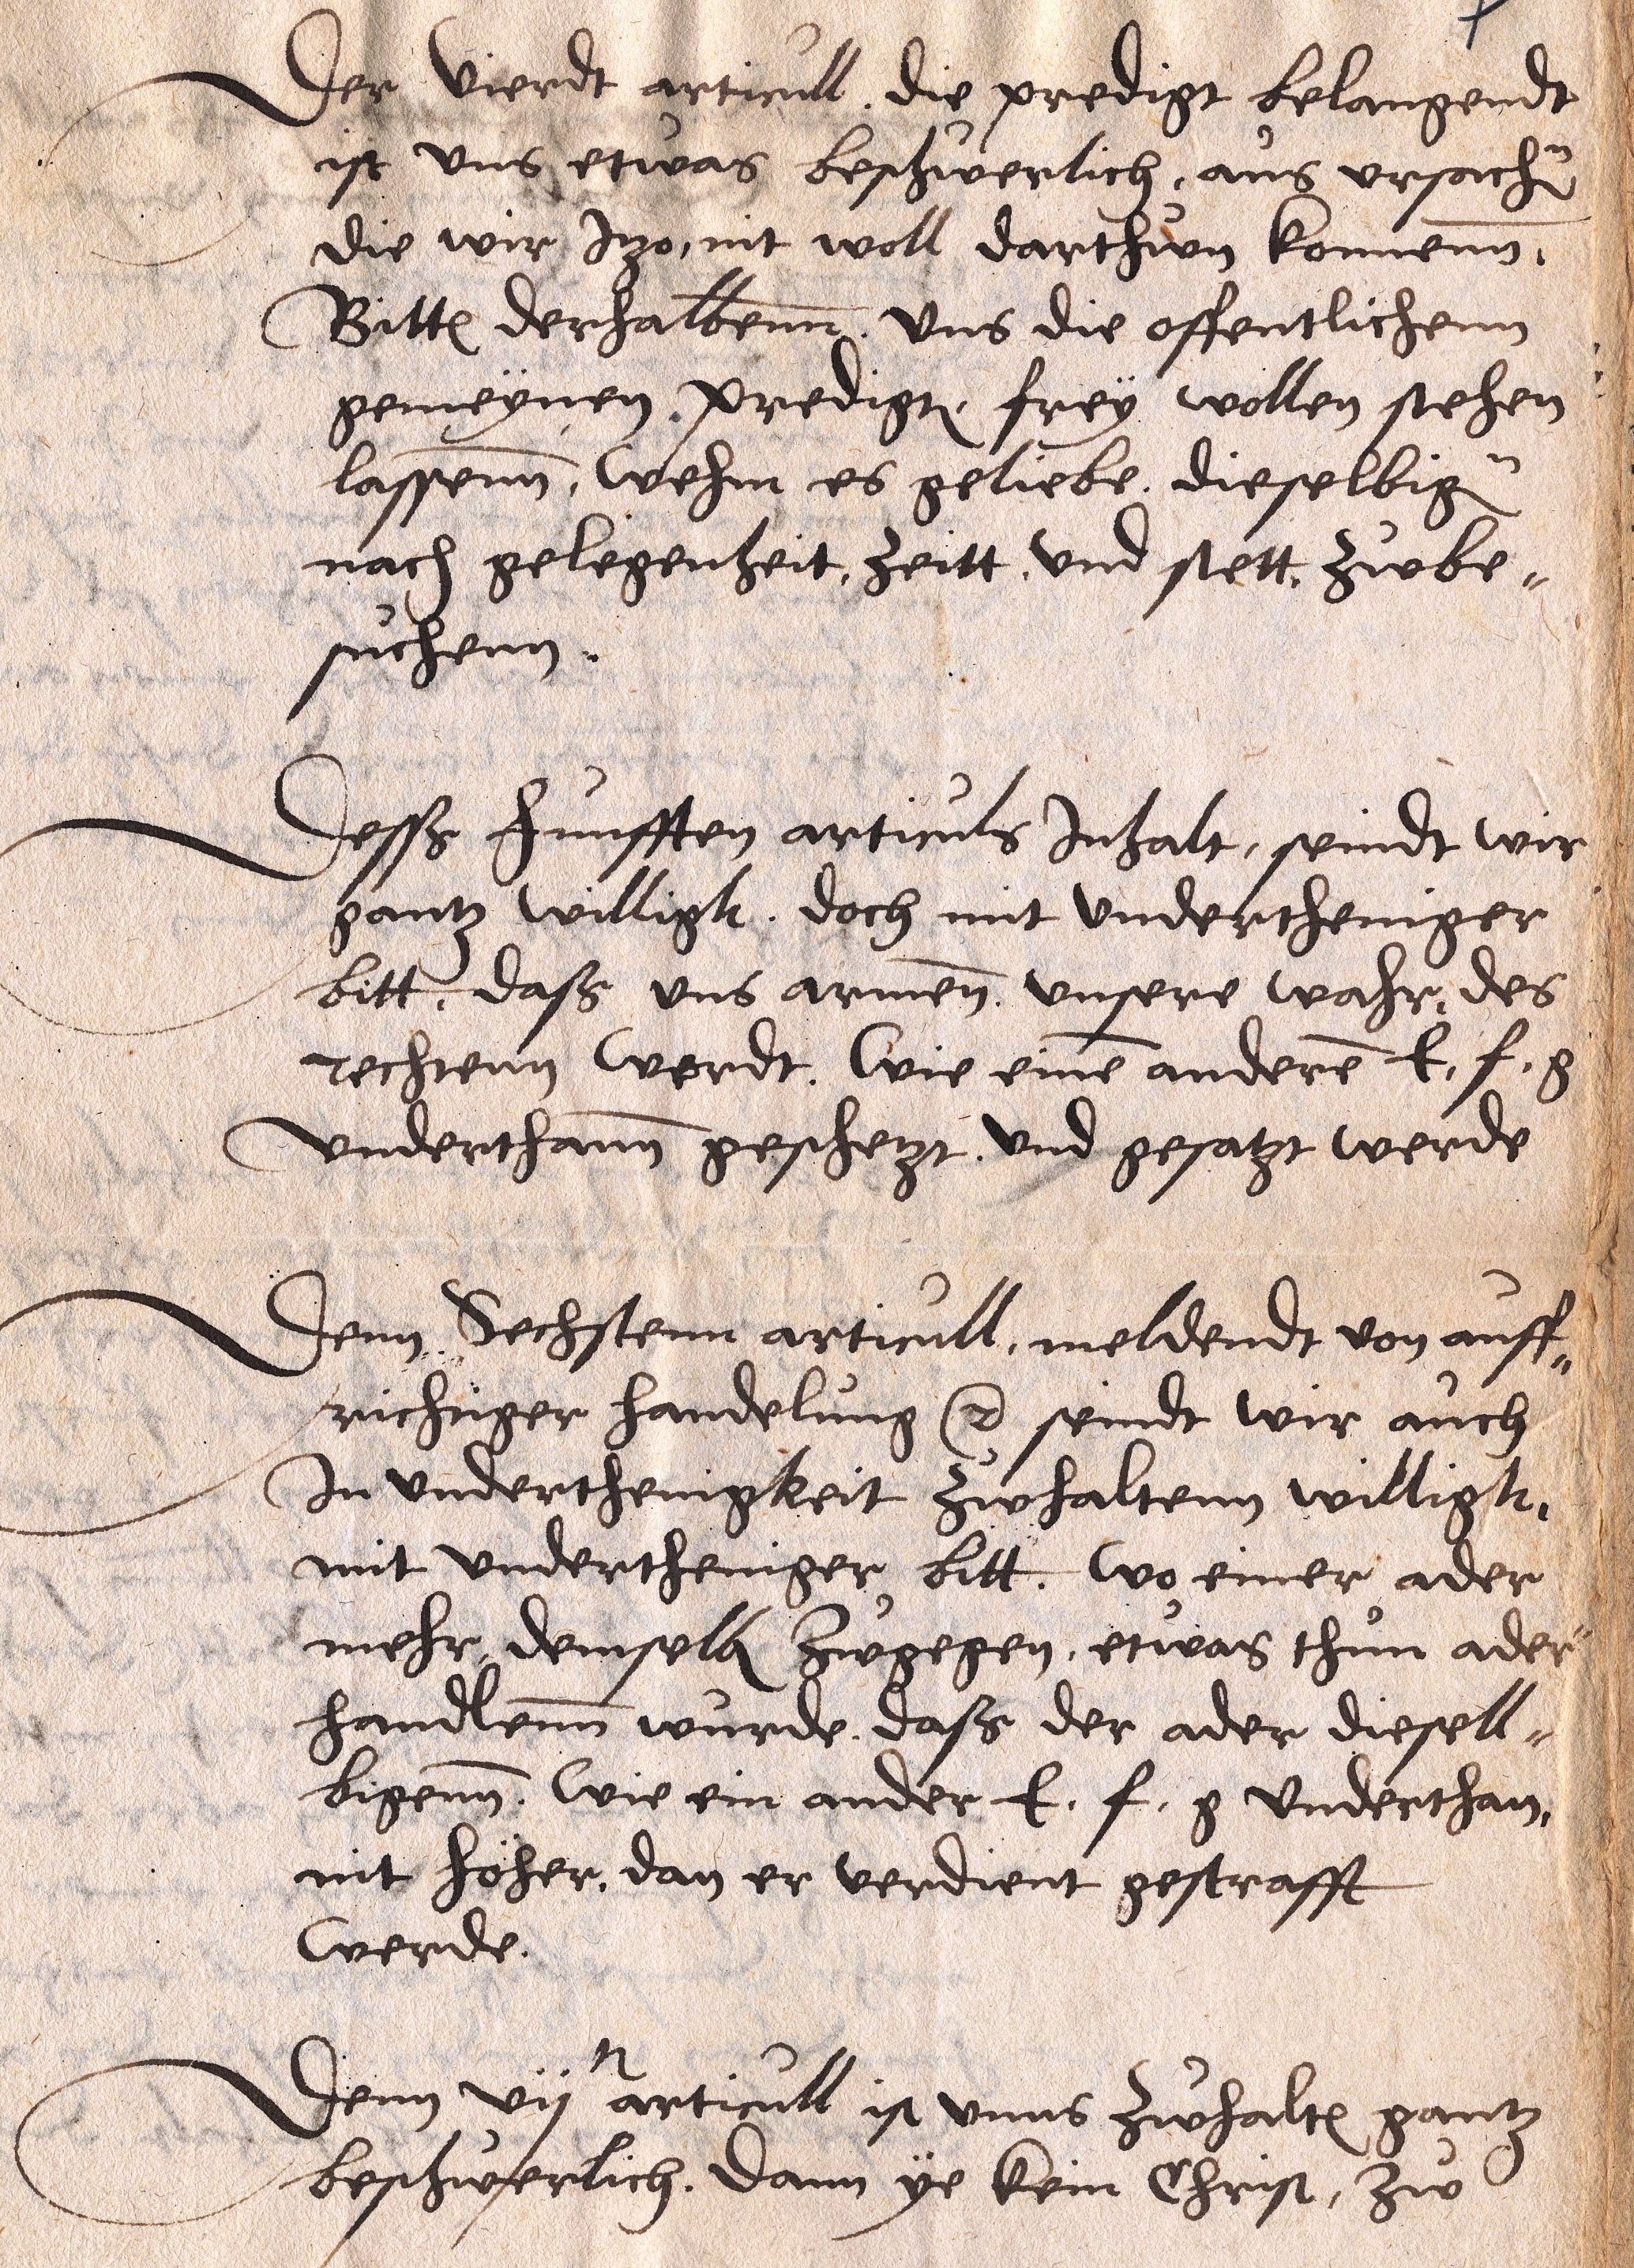 Der Vierdt articull. die predigt belangendt
ist vns etwas beschwerlich, aus vrsachen̄
die wir Jtzo, nit woll darthun konnenn̄.
Bitten derhalbenn̄. Vns die offentlichenn
gemeÿnen, predigten, freÿ wollen stehen
lassenn̄, Wehm es geliebe, dieselbigen̄
nach gelegenheit, Zeitt, vnd stett, Zwbe„
suchenn.
Dess Funfften articuls Jnhalt, seindt wir
gantz willigk. doch mit vndertheniger
bitt, daß vns armen̄. vnsere wahr, des
rechtenn werdt. Wie eine͞ andere͞ E. f. g
vnderthann̄ geschetzt. vnd gesatzt werde
Denn Sechstenn articull, meldendt von auff„
richtiger handelung ꝛc seindt wir auch
Jn vnderthenigkeit Zwhaltenn willigk.
mit vndertheniger bitt. Wo einer ader
mehr, demselben Zwgegen, etwas thun ader
handlenn̄ wurde. daß der ader diesell„
bigenn̄. Wie ein ander E. f. g Vnderthan,
nit höher, dan er verdient gestrafft
Werde.
Denn vijn articull ist vnns Zwhalten gantz
beschwerlich. Dann ÿe kein Christ, Zw